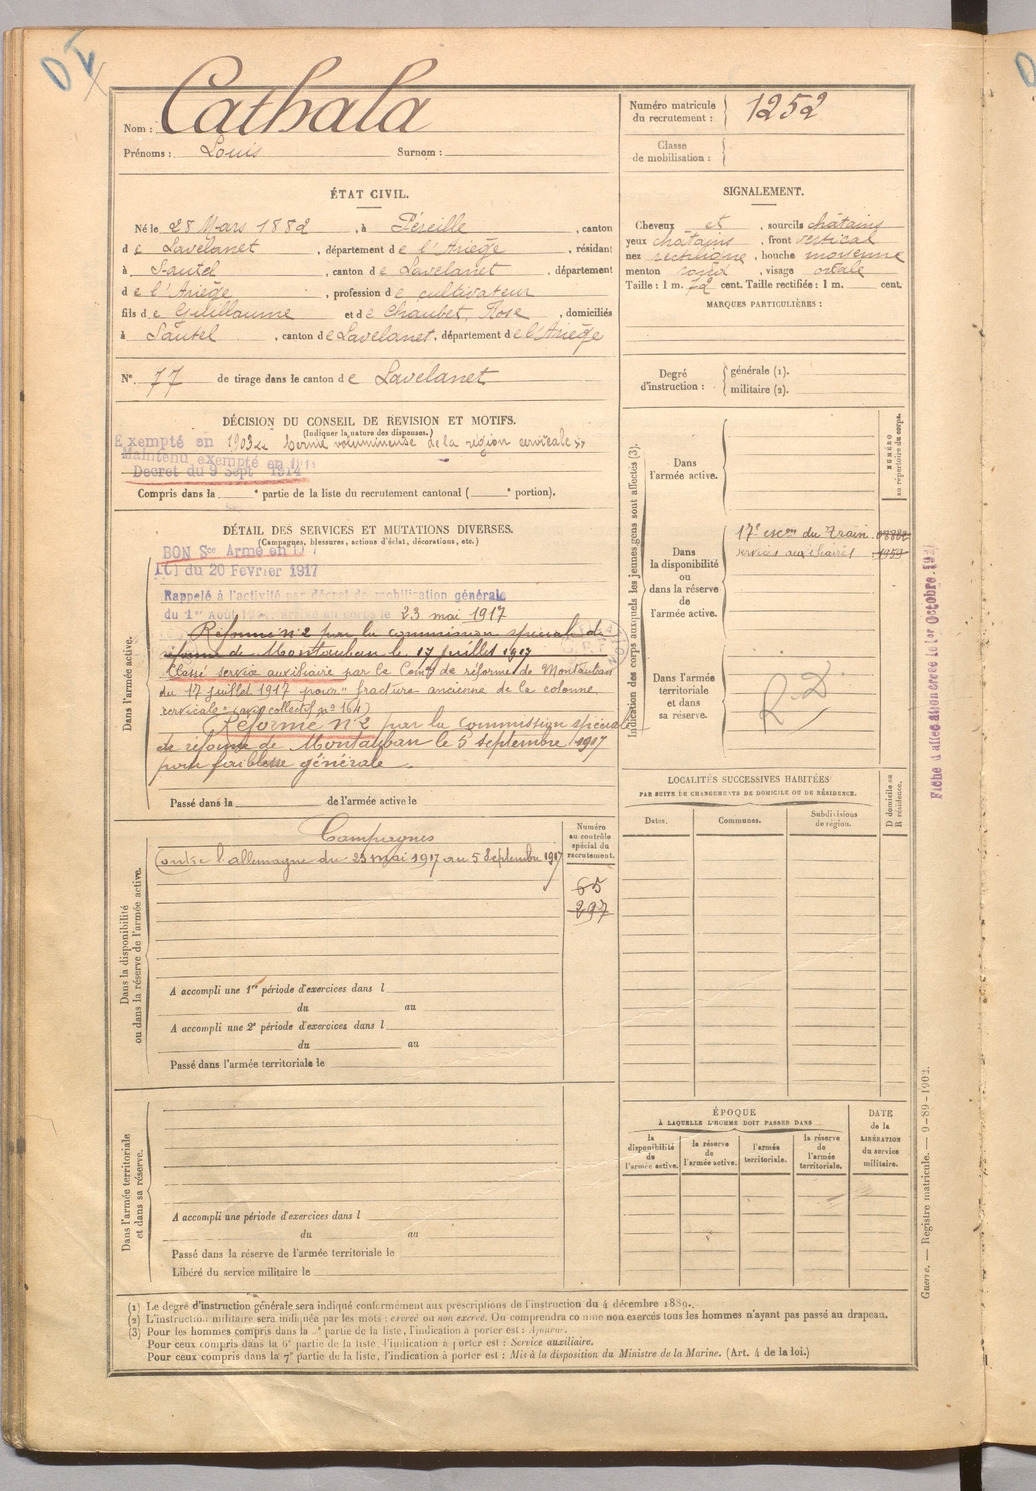 Nom : Cathala
Prénoms : Louis Surnom :
Numéro matricule du recrutement : 1252
Classe de mobilisation :
ÉTAT CIVIL.
Né le 28 Mars 1882, à Péreille, canton
de Lavelanet, département de l'Ariège, résidant
à Sautel, canton de Lavelanet, département
de l'Ariège, profession de cultivateur
fils de Guillaume et de Chaubet, Rose, domiciliés
à Sautel, canton de Lavelanet, département de l'Ariège
N° 77 de tirage dans le canton de Lavelanet
SIGNALEMENT.
Cheveux et, sourcils châtains
yeux châtains, front vertical
nez rectiligne, bouche moyenne
menton rond, visage ovale
Taille : 1 m. 72 cent. Taille rectifiée : 1 m. cent.
MARQUES PARTICULIÈRES :
Degré d'instruction : générale (1).
militaire (2).
DÉCISION DU CONSEIL DE REVISION ET MOTIFS.
(Indiquer la nature des dispenses.)
Exempté en 1903 hernie volumineuse de la région cervicale
Maintenu exempté en
Décret du 9 Sept 1914
Compris dans la e partie de la liste du recrutement cantonal ( e portion).
DÉTAIL DES SERVICES ET MUTATIONS DIVERSES.
(Campagnes, blessures, actions d'éclat, décorations, etc.)
Dans l'armée active.
BON Sce Armé en
LOI du 20 Février 1917
Rappelé à l'activité par décret de mobilisation générale
du 1er Août arrivé au corps le 23 mai 1917
Réforme n° 2 par la commission spéciale de
réforme de Montauban le 17 juillet 1917
Classé service auxiliaire par la Comon de réforme de Montauban
du 17 juillet 1917 pour "fracture ancienne de la colonne
cervicale" (avis collectif n° 164)
Réformé n° 2 par la commission spéciale
de réforme de Montauban le 5 septembre 1917
pour faiblesse générale.
Passé dans la de l'armée active le
Indication des corps auxquels les jeunes gens sont affectés (3).
NUMÉRO au répertoire du corps.
Dans l'armée active.
Dans la disponibilité ou dans la réserve de l'armée active.
17e escon du Train
services auxiliaires 1959
Dans l'armée territoriale et dans sa réserve.
Fiche d'affectation créée le 1er Octobre 192
Dans la disponibilité ou dans la réserve de l'armée active.
Campagnes
Contre l'allemagne du 23 mai 1917 au 5 Septembre 1917
Numéro au contrôle spécial du recrutement.
65
297
A accompli une 1re période d'exercices dans l
du au
A accompli une 2e période d'exercices dans l
du au
Passé dans l'armée territoriale le
LOCALITÉS SUCCESSIVES HABITÉES
PAR SUITE DE CHANGEMENTS DE DOMICILE OU DE RÉSIDENCE.
Dates. Communes. Subdivisions de région. D domicile ou R résidence.
Dans l'armée territoriale et dans sa réserve.
A accompli une période d'exercices dans l
du au
Passé dans la réserve de l'armée territoriale le
Libéré du service militaire le
ÉPOQUE
À LAQUELLE L'HOMME DOIT PASSER DANS
la disponibilité de l'armée active. la réserve de l'armée active. l'armée territoriale. la réserve de l'armée territoriale.
DATE de la LIBÉRATION du service militaire.
Guerre. — Registre matricule. — 9-89-1902.
(1) Le degré d'instruction générale sera indiqué conformément aux prescriptions de l'instruction du 4 décembre 1889.
(2) L'instruction militaire sera indiquée par les mots : exercé ou non exercé. On comprendra comme non exercés tous les hommes n'ayant pas passé au drapeau.
(3) Pour les hommes compris dans la partie de la liste, l'indication à porter est : Ajourné.
Pour ceux compris dans la 6e partie de la liste, l'indication à porter est : Service auxiliaire.
Pour ceux compris dans la 7e partie de la liste, l'indication à porter est : Mis à la disposition du Ministre de la Marine. (Art. 4 de la loi.)